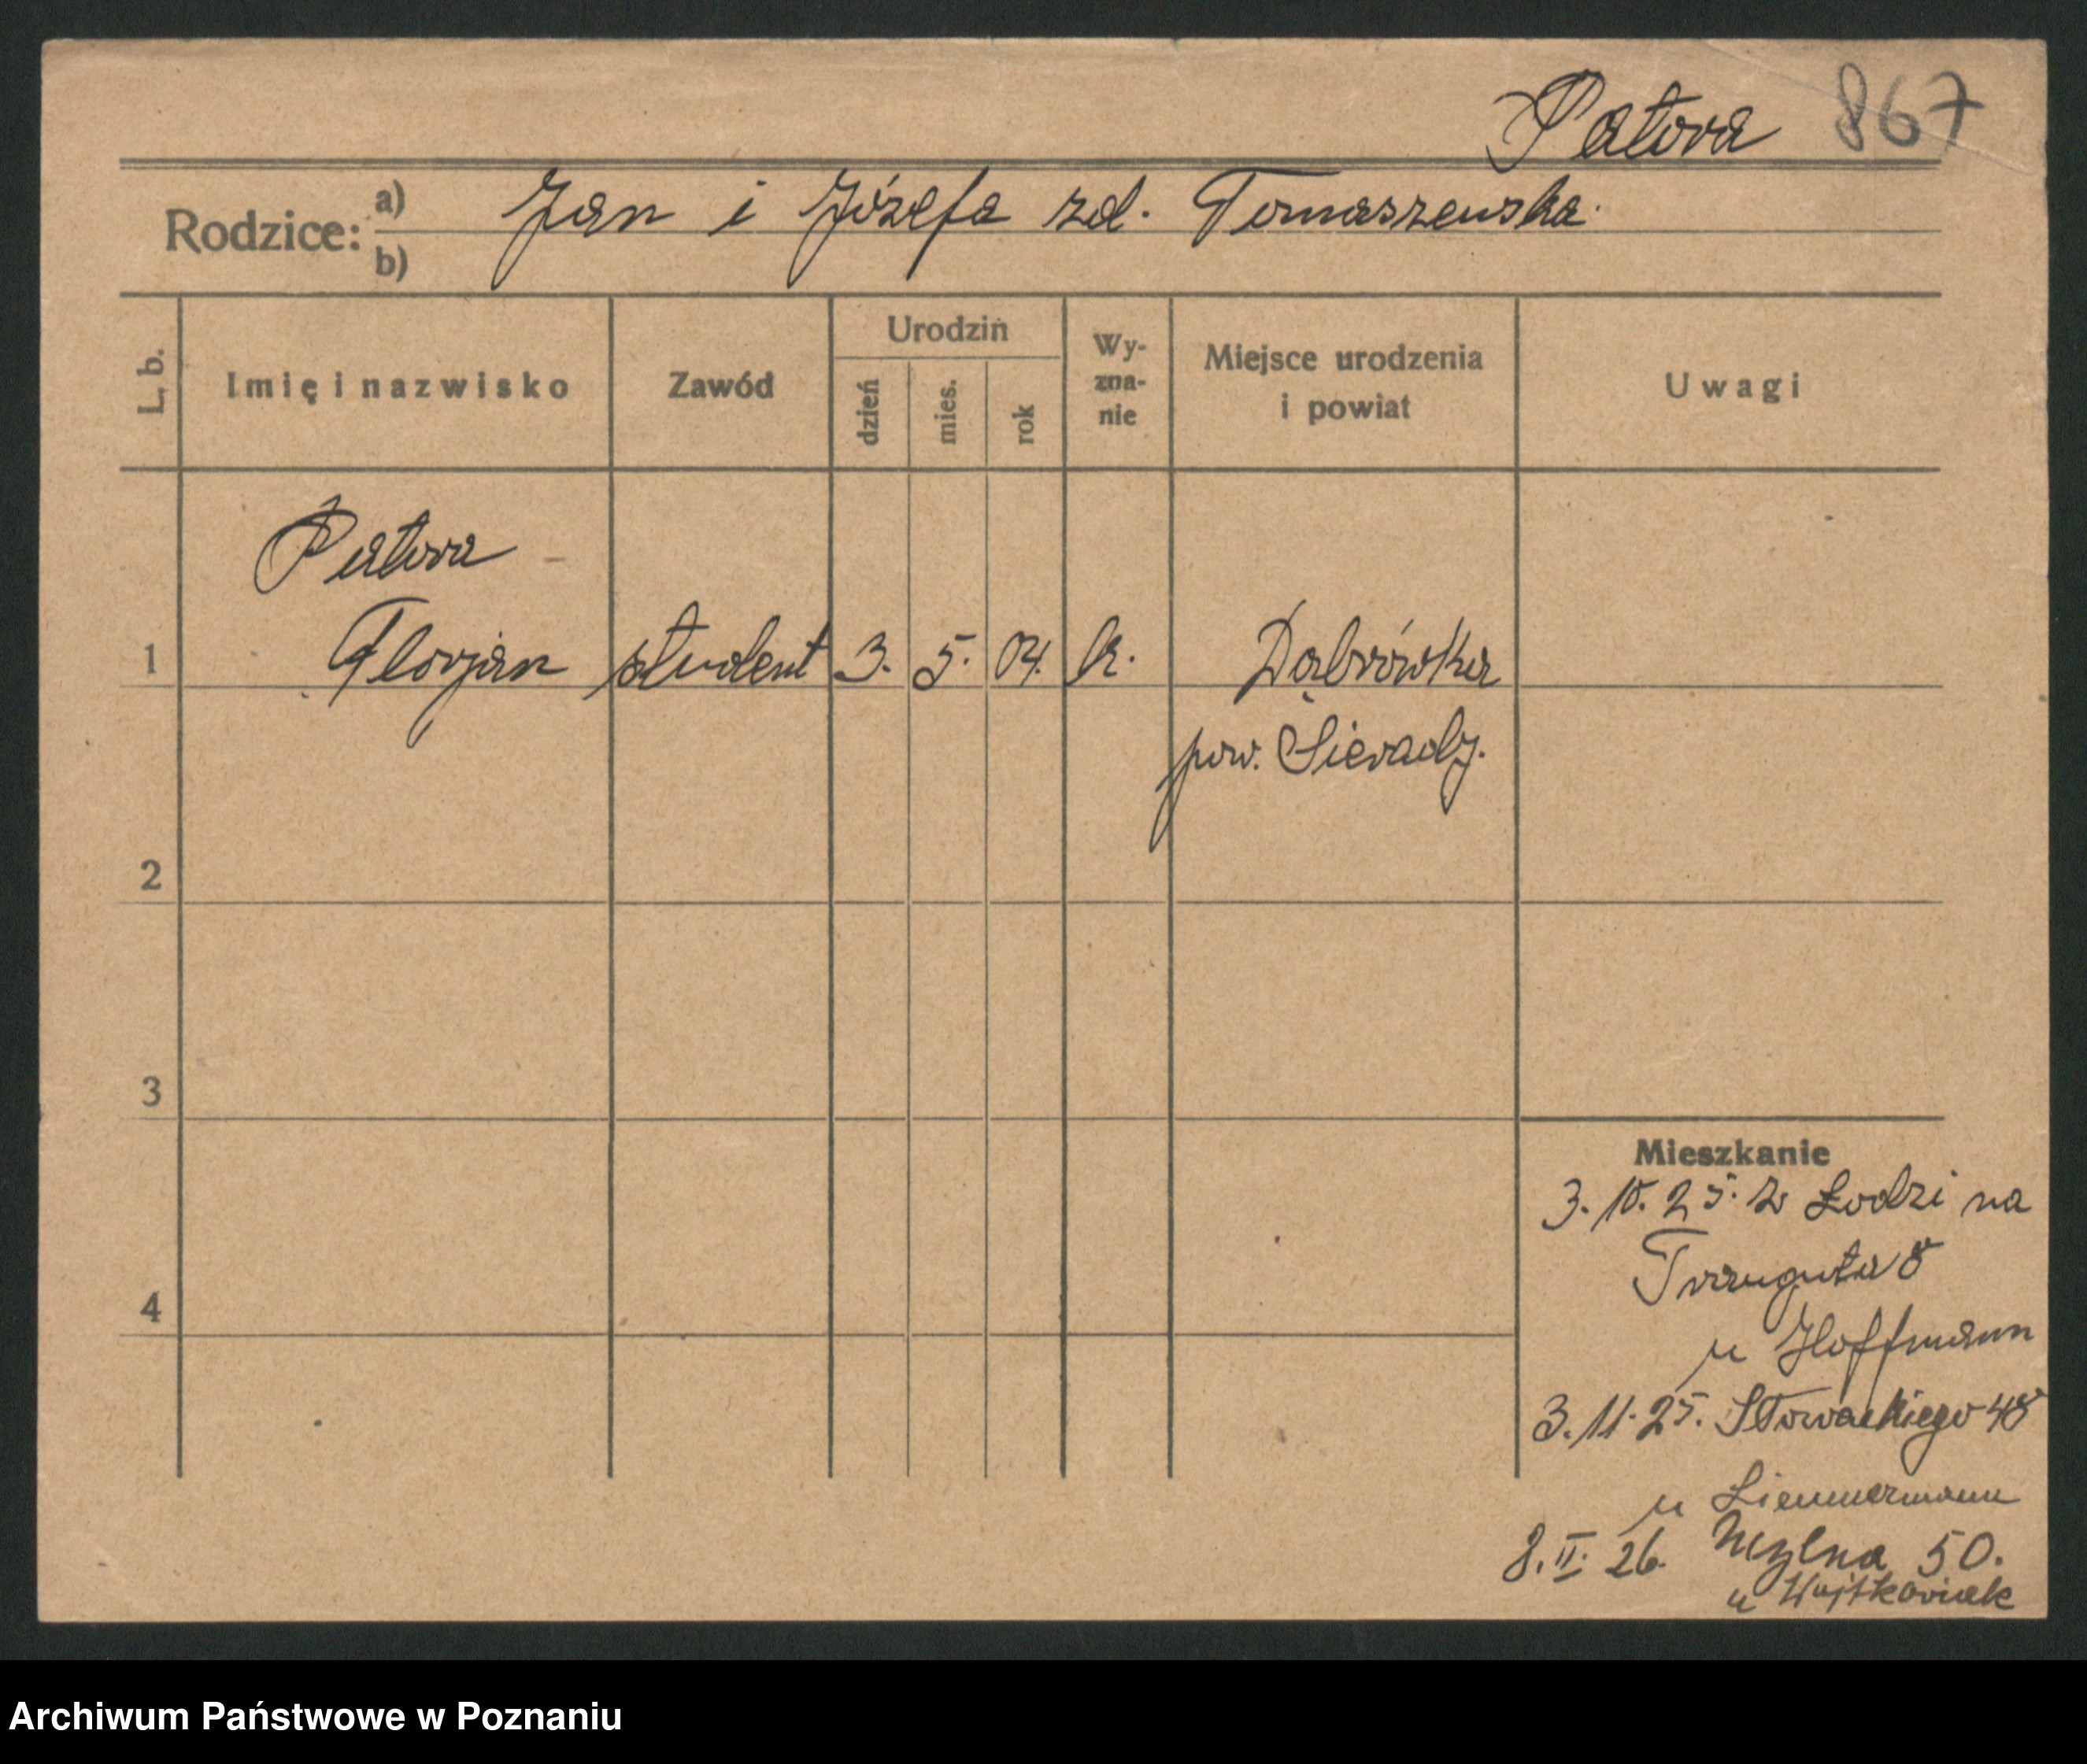 Patora 867
Rodzice: a) Jan i Józefa zd. Tomaszewska.
b)
L. b. Imię i nazwisko Zawód Urodzin Wy-zna-nie Miejsce urodzenia i powiat Uwagi
dzień mies. rok
Patora
1 Florjan student 3. 5. 04. k. Dąbrówka
pow. Sieradz.
2
3
Mieszkanie
3.10.25. z Łodzi na
Trauguta 8
4
u Hoffmann
3.11.25. Słowackiego 48
u
8.II.26. Mylna 50.
u Wojtkowiak
Archiwum Państwowe w Poznaniu